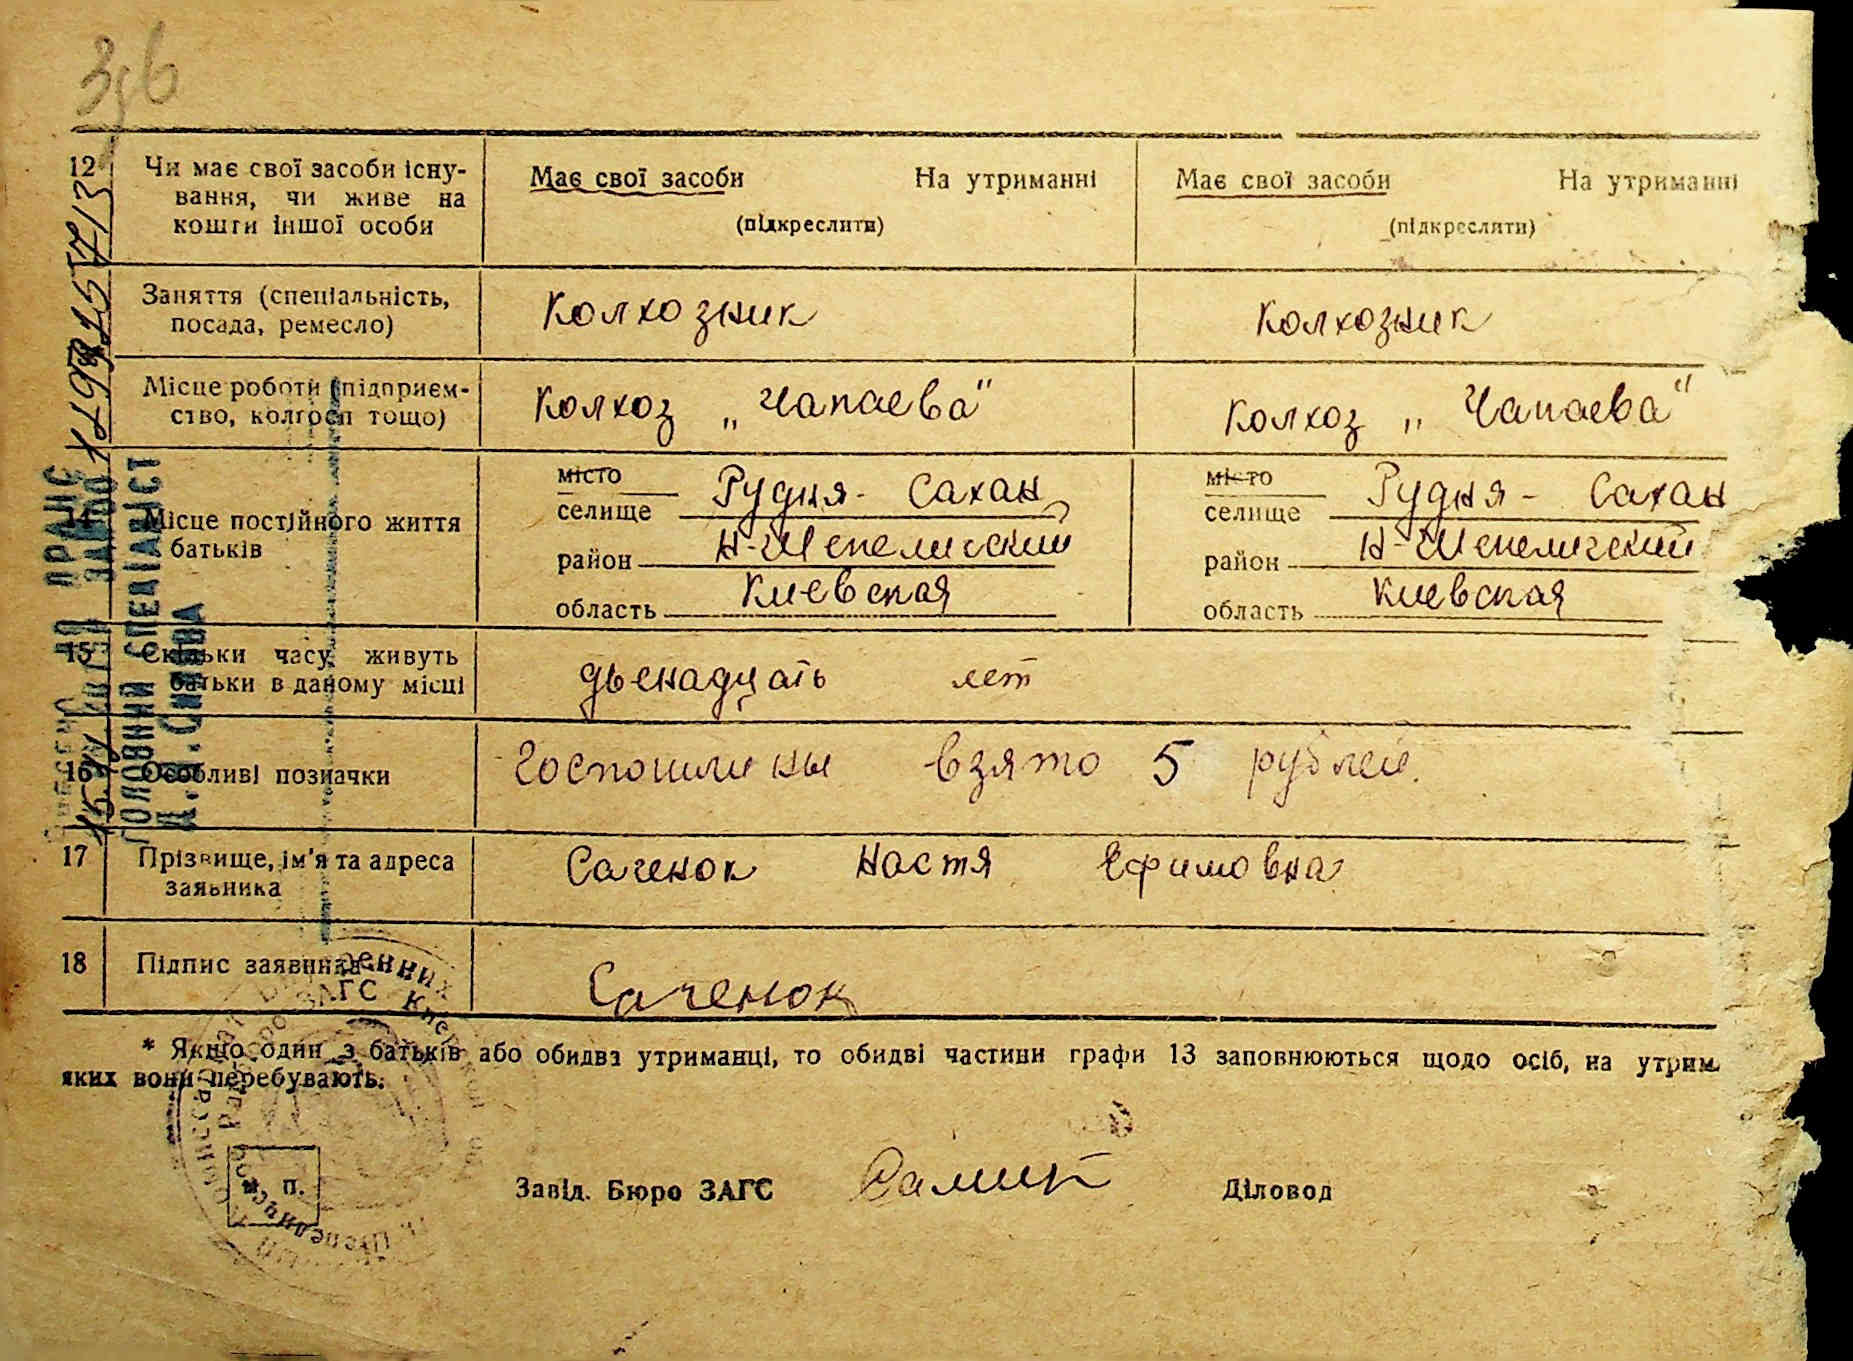 12 Чи має свої засоби існу- Має свої засоби На утриманні Має свої засоби На утриманні
вання, чи живе на
кошти іншої особи (підкреслити) (підкреслити)
Заняття (спеціальність, Колхозник Колхозник
посада, ремесло)
Місце роботи (підприєм- Колхоз „Чапаева" Колхоз „Чапаева"
ство, колгосп тощо)
14 Місце постійного життя місто Рудня- Сахан місто Рудня- Сахан
батьків селище селище
район Н-Шепелический район Н-Шепелический
область Киевская область Киевская
15 Скільки часу живуть двенадцать лет
батьки в даному місці
16 Особливі позначки Госпошлины взято 5 рублей.
17 Прізвище, ім'я та адреса Саченок Настя Ефимовна
заявника
18 Підпис заявника Саченок
* Якщо один з батьків або обидва утриманці, то обидві частини графи 13 заповнюються щодо осіб, на утрим
яких вони перебувають.
М. П. Завід. Бюро ЗАГС Діловод
ГОЛОВНИЙ СПЕЦІАЛІСТ